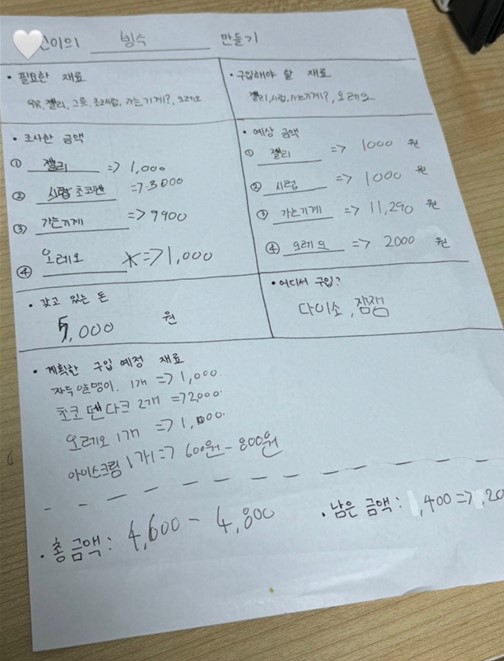 이의 빙수 만들기
• 필요한 재료
우유, 젤리, 그릇, 초코시럽, 가는기계?, 오레오
• 구입해야 할 재료
젤리, 시럽, 가는기계?, 오레오
• 조사한 금액
① 젤리 => 1,000
② 시럽 초코펜 => 3000
③ 가는기계 => 7900
④ 오레오 => 1,000
• 예상 금액
① 젤리 => 1000 원
② 시럽 => 1000 원
③ 가는기계 => 11,290 원
④ 오레오 => 2000 원
• 갖고 있는 돈
5,000 원
• 어디서 구입?
다이소, 잼잼
• 계획한 구입 예정 재료
1개 => 1,000.
초코펜 다크 2개 => 2000.
오레오 1개 => 1,000.
아이스크림 1개 => 600원 - 800원
• 총 금액: 4,600 - 4,800
• 남은 금액: 400 => 20